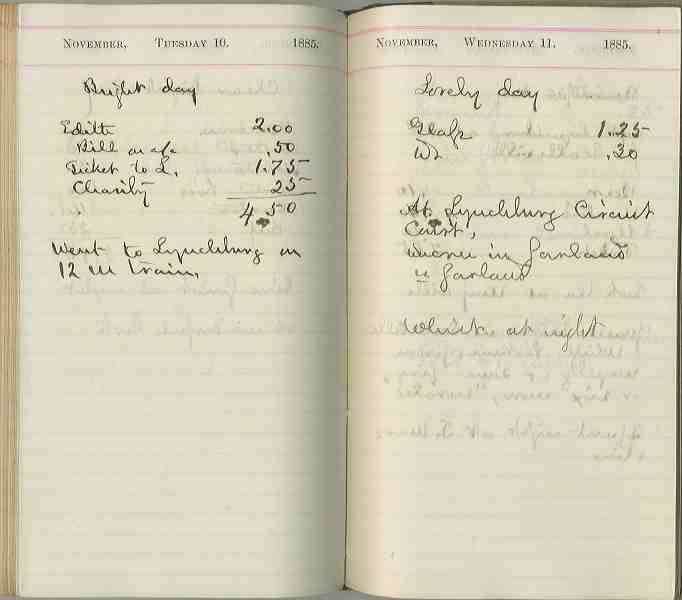 November, Tuesday 10. 1885.
Bright day
Edith 2.00
Bill on a/c .50
Ticket to L. 1.75
Charity 25
4.50
Went to Lynchburg on
12 m train.
November, Wednesday 11. 1885.
Lovely day
1.25
.30
At Lynchburg Circuit
Court,
in Garland
v Garland
Whist at night